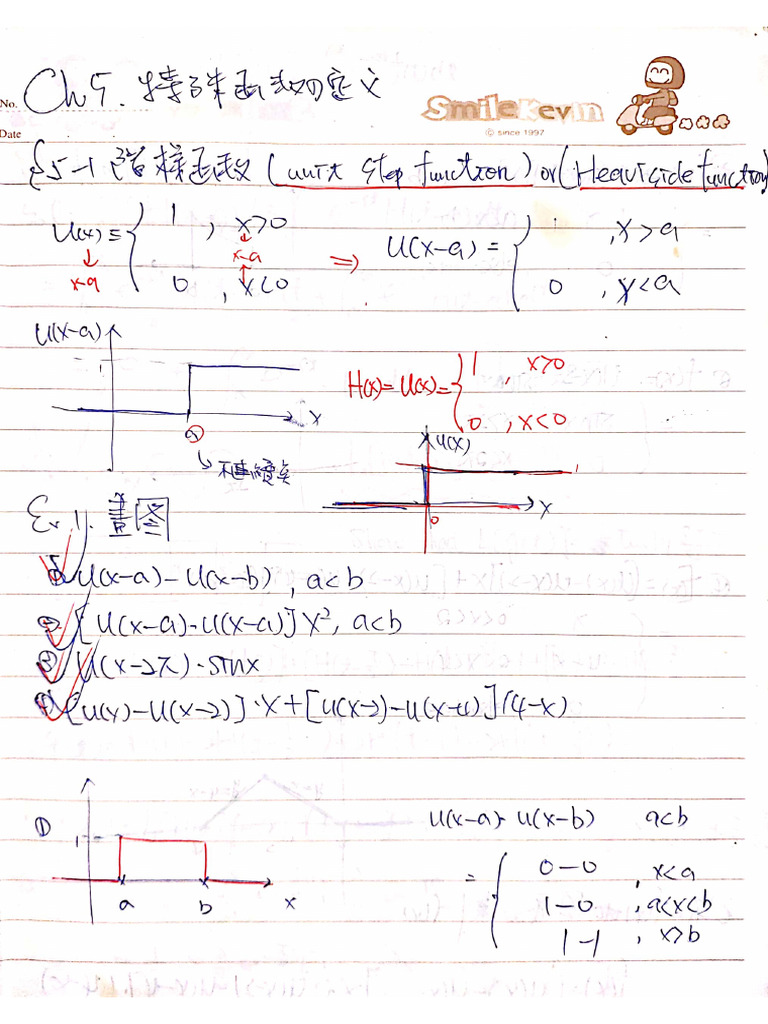 No. Ch5. 特殊函數的定义
SmileKevin
Date
© since 1997
§5-1 階梯函数 (unit step function) or (Heaviside function)
U(x) = { 1 , x>0
x-a x-a
0 , x<0
⇒ U(x-a) = { 1 , x>a
0 , x<a
U(x-a)
1
a x
↳ 不連續点
H(x) = U(x) = { 1 , x>0
0 , x<0
U(x)
1
0 x
Ex.1. 畫图
① U(x-a)-U(x-b), a<b
② [U(x-a)-U(x-a)] x², a<b
③ U(x-2π)·sinx
④ [U(x)-U(x-2)]·x+[U(x-2)-U(x-4)](4-x)
①
1
a b x
U(x-a)-U(x-b) a<b
= { 0-0 , x<a
1-0 , a<x<b
1-1 , x>b